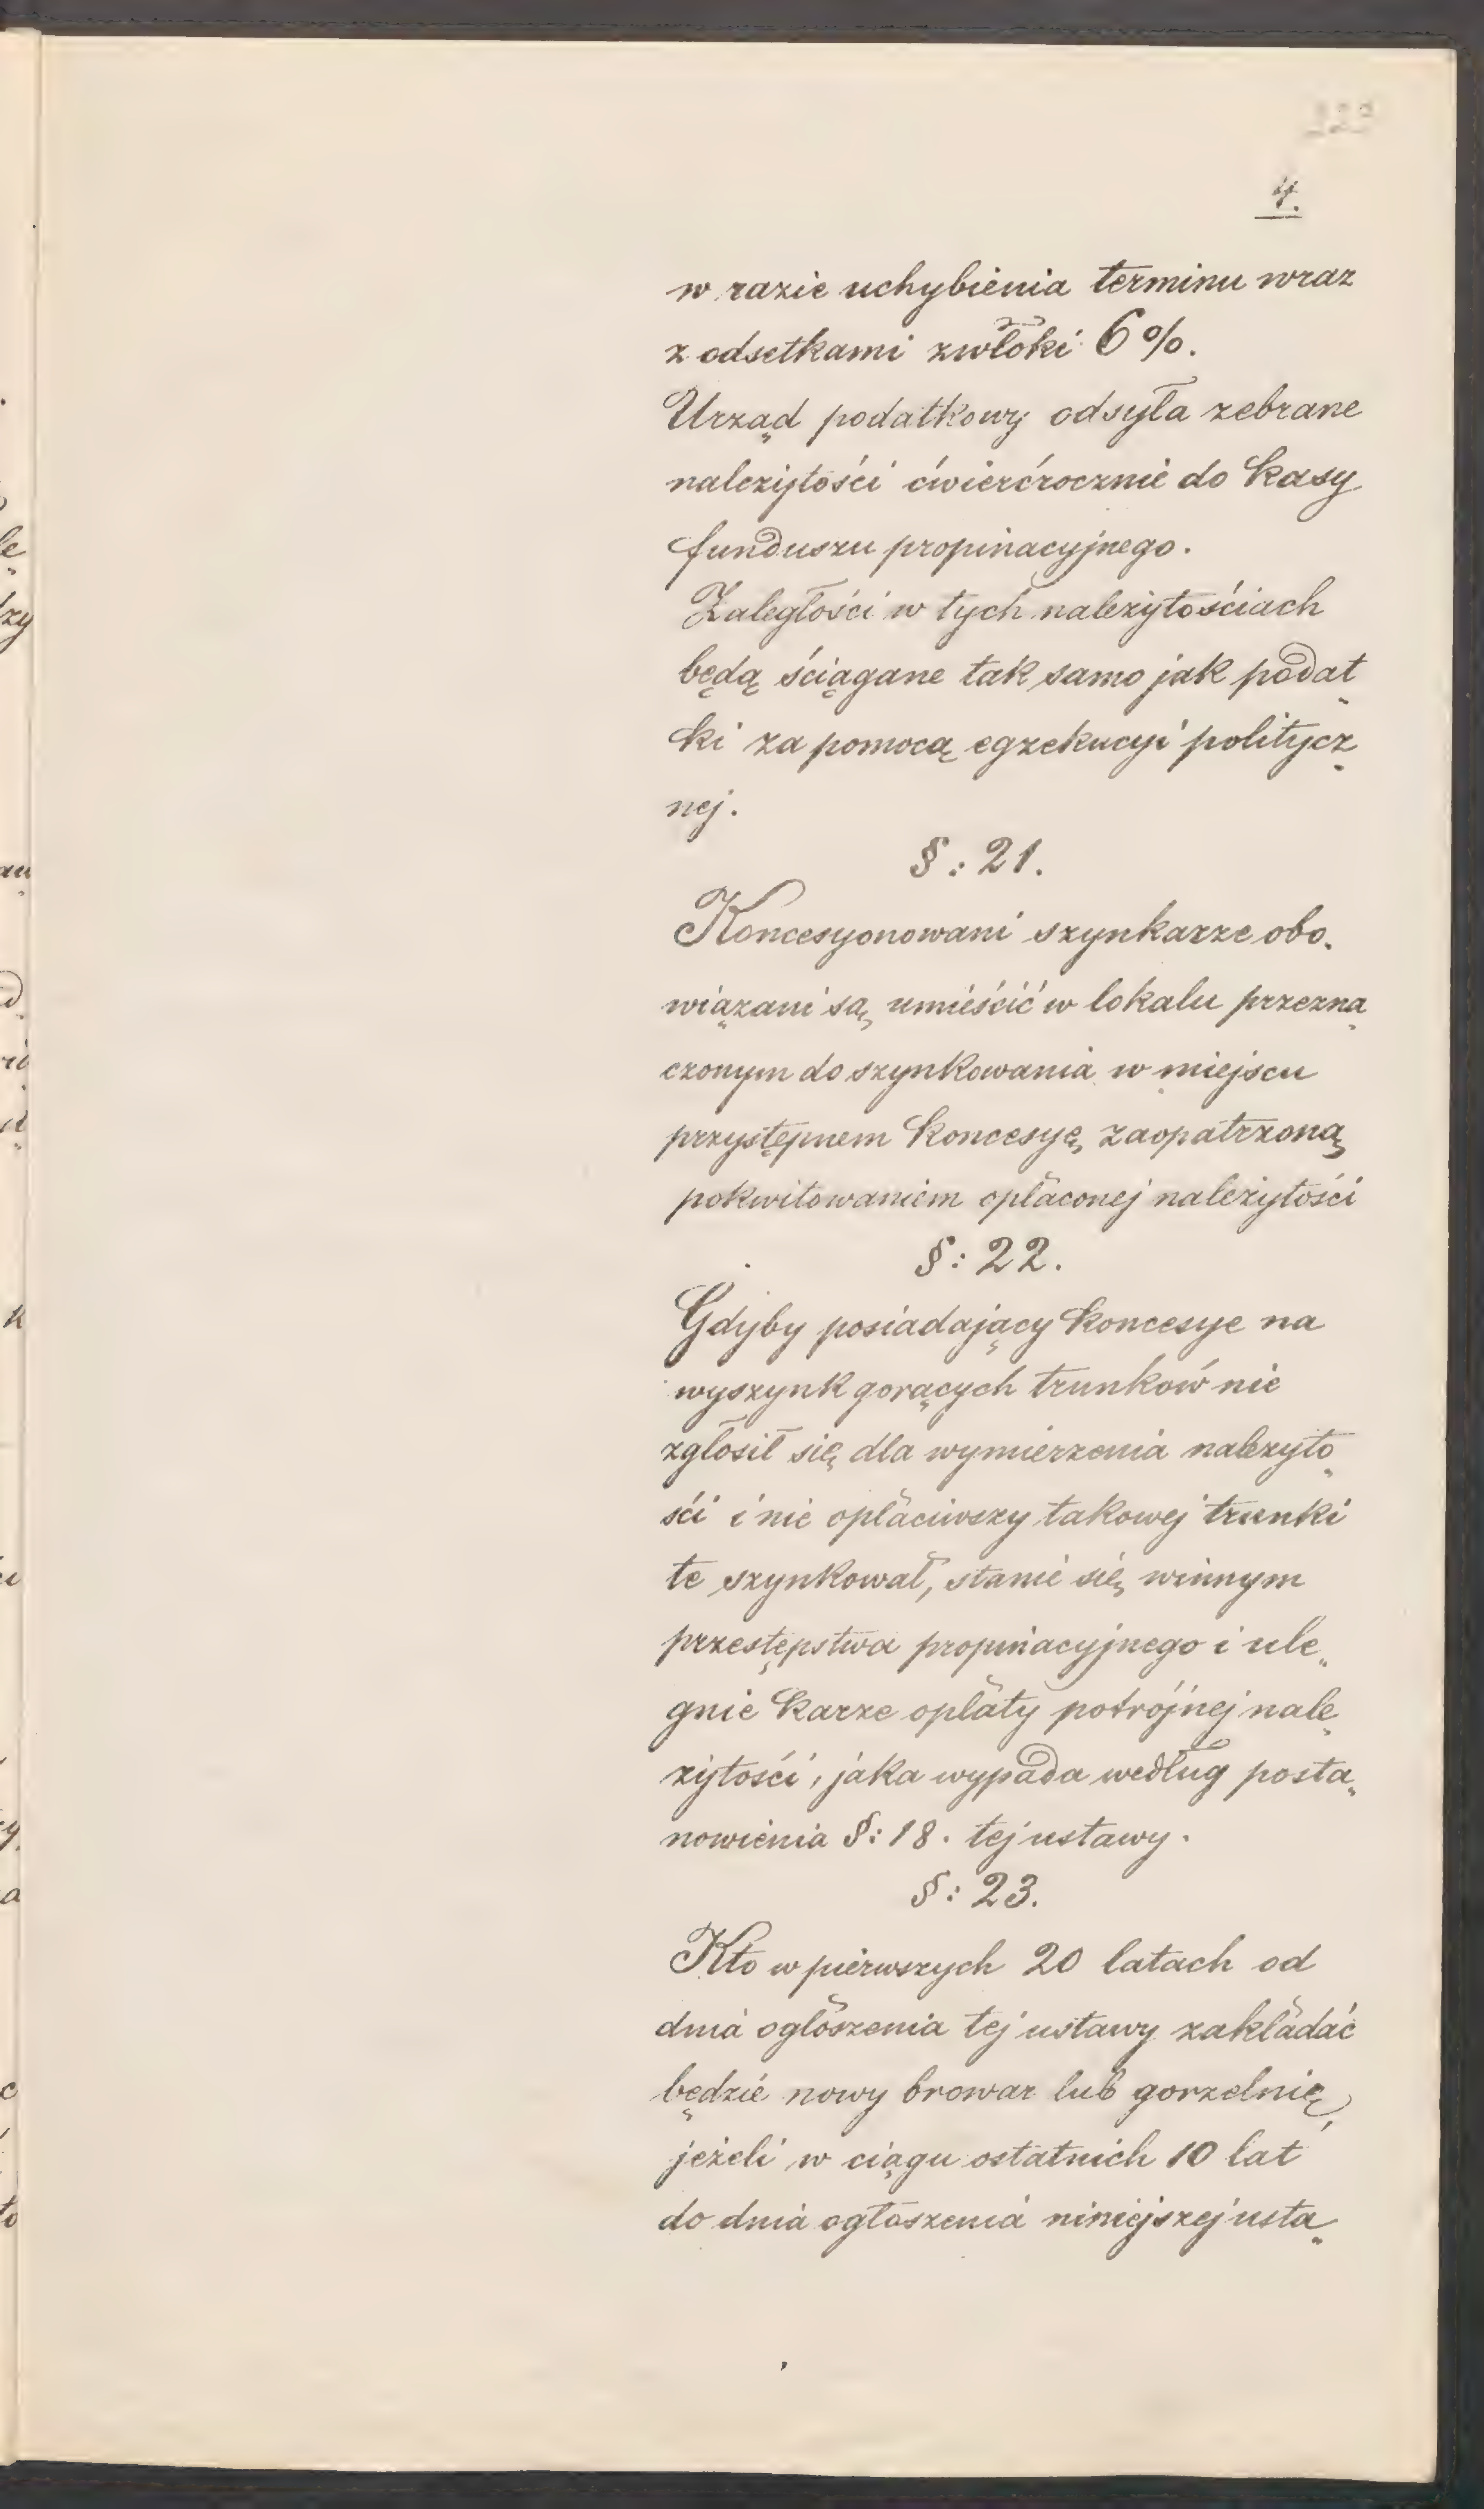 4.
w razie uchybienia terminu wraz
z odsetkami zwłoki 6%.
Urząd podatkowy odsyła zebrane
należytości ćwierćrocznie do kasy
funduszu propinacyjnego.
Zaległości w tych należytościach
będą ściągane tak samo jak podat„
ki za pomocą egzekucyi politycz„
nej.
§: 21.
Koncesyonowani szynkarze obo„
wiązani są, umieścić w lokalu przezna„
czonym do szynkowania w miejscu
przystępnem koncesyę, zaopatrzoną
pokwitowaniem opłaconej należytości
§: 22.
Gdyby posiadający koncesye na
wyszynk gorących trunków nie
zgłosił się dla wymierzenia należyto„
ści i nie opłaciwszy takowej trunki
te szynkował, stanie się winnym
przestępstwa propinacyjnego i ule„
gnie karze opłaty potrójnej nale„
żytości, jaka wypada według posta„
nowienia §: 18. tej ustawy.
§: 23.
Kto w pierwszych 20 latach od
dnia ogłoszenia tej ustawy zakładać
będzie nowy browar lub gorzelnię,
jeżeli w ciągu ostatnich 10 lat
do dnia ogłoszenia niniejszej usta„